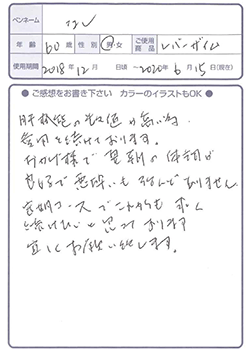 ペンネーム
年齢 60歳 性別 男・女 ご使用商品 レバーザイム
使用期間 2018年12月 日頃 ～2020年6月15日(現在)
● ご感想をお書き下さい カラーのイラストもOK ●
肝機能の数値が高い為、
愛用を続けております。
おかげ様で翌朝の体調が
良好で悪酔いもほとんどありません。
定期コースでこれからも永く
続けたいと思っております
宜しくお願い致します。